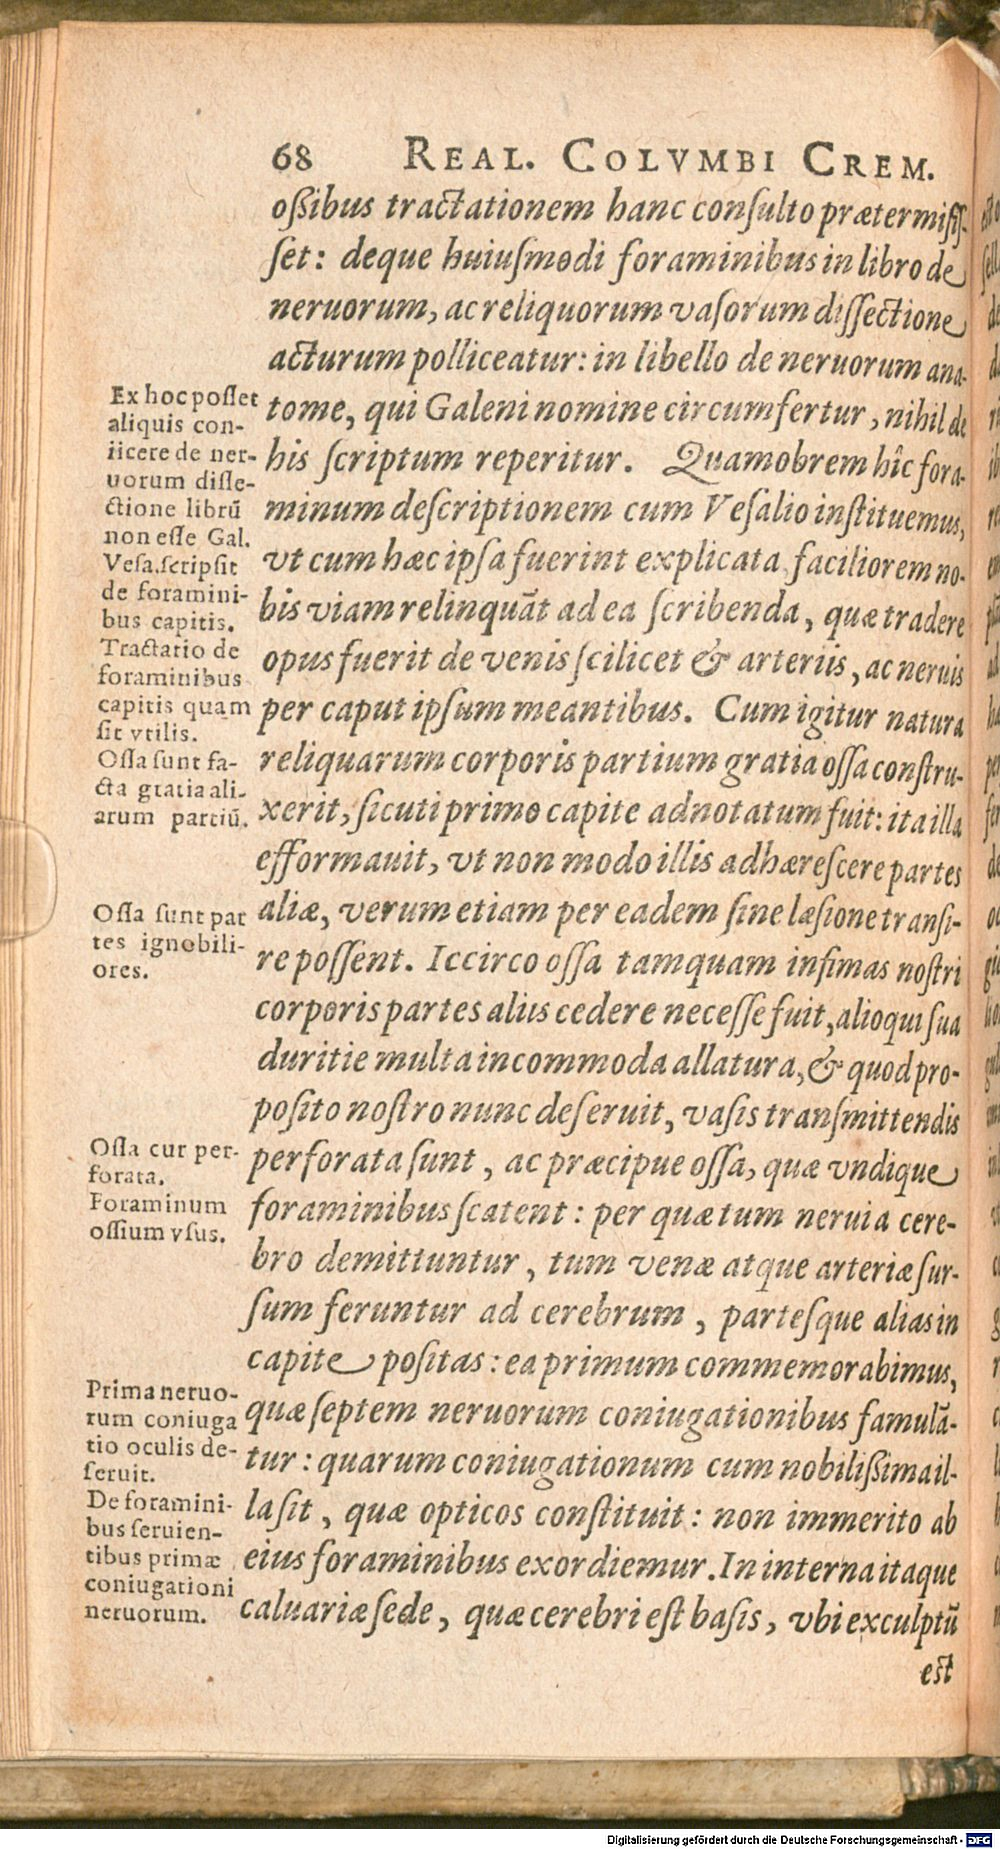 68 REAL. COLVMBI CREM.
oßibus tractationem hanc consulto prætermisis-
ſet: deque huiuſmodi foraminibus in libro de
neruorum, ac reliquorum vaſorum diſſectione
acturum polliceatur: in libello de neruorum ana-
tome, qui Galeni nomine circumfertur, nihil de
his ſcriptum reperitur. Quamobrem hîc fora-
minum deſcriptionem cum Veſalio inſtituemus,
vt cum hæc ipſa fuerint explicata faciliorem no-
bis viam relinquāt ad ea ſcribenda, quæ tradere
opus fuerit de venis ſcilicet & arteriis, ac neruis
per caput ipſum meantibus. Cum igitur natura
reliquarum corporis partium gratia oſſa conſtru-
xerit, ſicuti primo capite adnotatum fuit: ita illa
efformauit, vt non modo illis adhæreſcere partes
aliæ, verum etiam per eadem ſine læſione tranſi-
re poſſent. Iccirco oſſa tamquam infimas noſtri
corporis partes aliis cedere neceſſe fuit, alioqui ſua
duritie multa incommoda allatura, & quod pro-
poſito noſtro nunc deſeruit, vaſis tranſmittendis
perforata ſunt, ac præcipue oſſa, quæ vndique
foraminibus ſcatent: per quæ tum nerui a cere-
bro demittuntur, tum venæ atque arteriæ ſur-
ſum feruntur ad cerebrum, parteſque alias in
capite poſitas: ea primum commemorabimus,
quæ ſeptem neruorum coniugationibus famulā-
tur: quarum coniugationum cum nobilißima il-
la ſit, quæ opticos conſtituit: non immerito ab
eius foraminibus exordiemur. In interna itaque
caluariæ ſede, quæ cerebri eſt baſis, vbi exculptū
eſt
Ex hoc poſſet
aliquis con-
iicere de ner-
uorum diſſe-
ctione librū
non eſſe Gal.
Veſa. ſcripſit
de foramini-
bus capitis.
Tractatio de
foraminibus
capitis quam
ſit vtilis.
Oſſa ſunt fa-
cta gratia ali-
arum partiū.
Oſſa ſunt par
tes ignobili-
ores.
Oſſa cur per-
forata.
Foraminum
oſſium vſus.
Prima neruo-
rum coniuga
tio oculis de-
ſeruit.
De foramini-
bus ſeruien-
tibus primæ
coniugationi
neruorum.
Digitalisierung gefördert durch die Deutsche Forschungsgemeinschaft - DFG